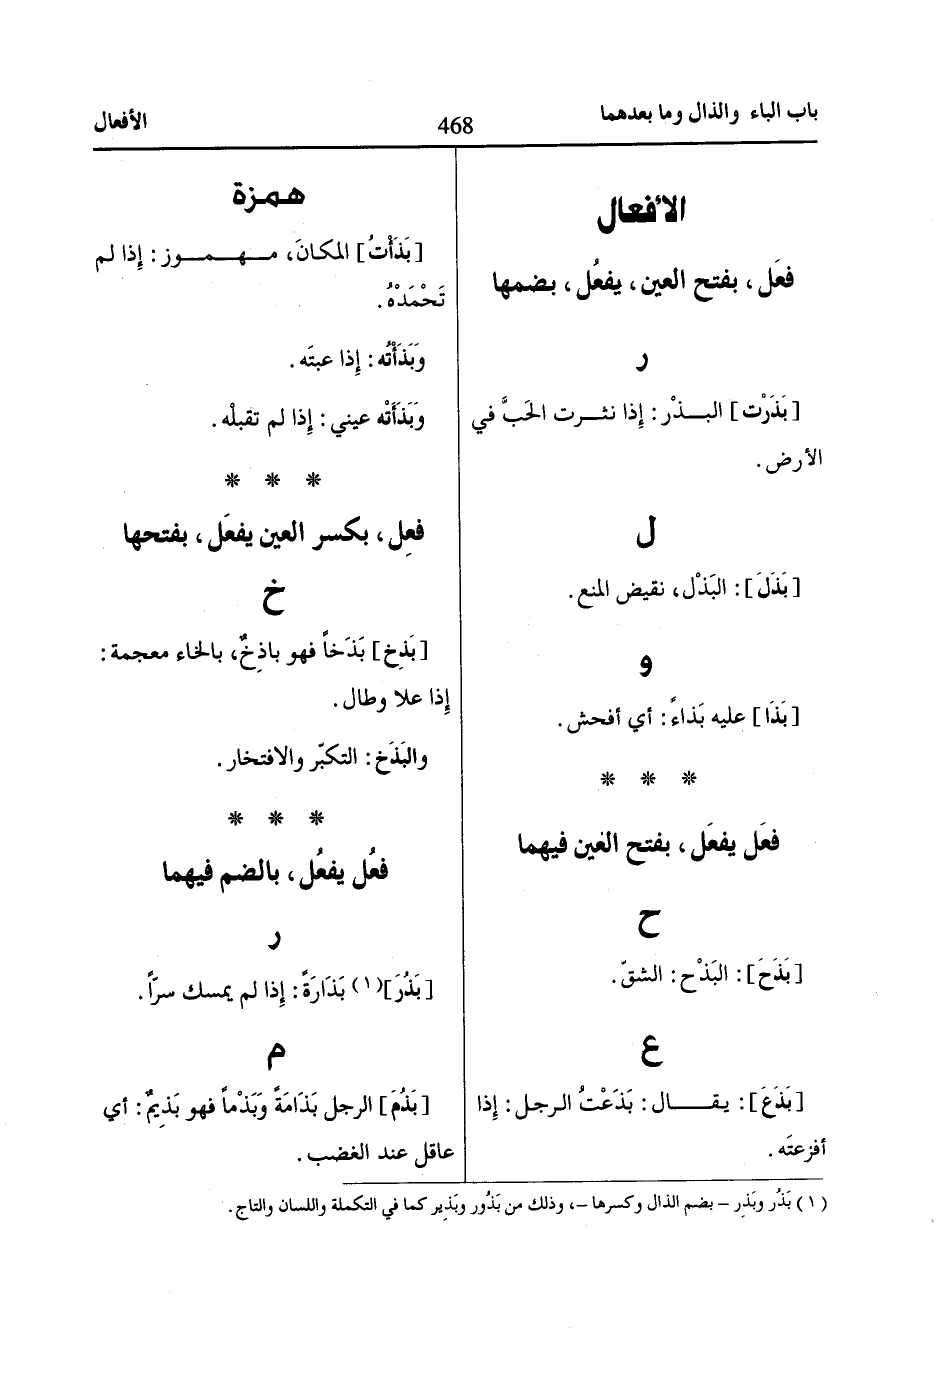 باب الباء والذال وما بعدهما
468
الأفعال
الأفعال
فعَل، بفتح العين، يفعُل، بضمها
ر
[بَذَرْت] البـــذْر: إذا نثــرت الحَبَّ في
الأرض.
ل
[بَذَلَ]: البَذْل، نقيض المنع.
و
[بَذَا] عليه بَذاءً: أي أفحش.
* * *
فعَل يفعَل، بفتح العين فيهما
ح
[بَذَحَ]: البَذْح: الشقّ.
ع
[بَذَعَ]: يقـــال: بَذَعْتُ الرجل: إذا
أفزعتَه.
همزة
[بَذَأْتُ] المكانَ، مـهـمـوز: إِذا لم
تَحْمَدْهُ.
وَبَذَأْتُه: إِذا عبتَه.
وَبَذَأَتْه عيني: إِذا لم تقبلْه.
* * *
فعِل، بكسر العين يفعَل، بفتحها
خ
[بَذِخ] بَذَخاً فهو باذِخٌ، بالخاء معجمة:
إِذا علا وطال.
والبَذَخ: التكبّر والافتخار.
* * *
فعُل يفعُل، بالضم فيهما
ر
[بَذُرَ](١) بَذَارَةً: إِذا لم يمسك سرّاً.
م
[بَذُمَ] الرجل بَذَامَةً وَبَذْماً فهو بَذِيمٌ: أي
عاقل عند الغضب.
(١) بَذُر وبَذِر – بضم الذال وكسرها –، وذلك من بَذُور وبَذِير كما في التكملة واللسان والتاج.